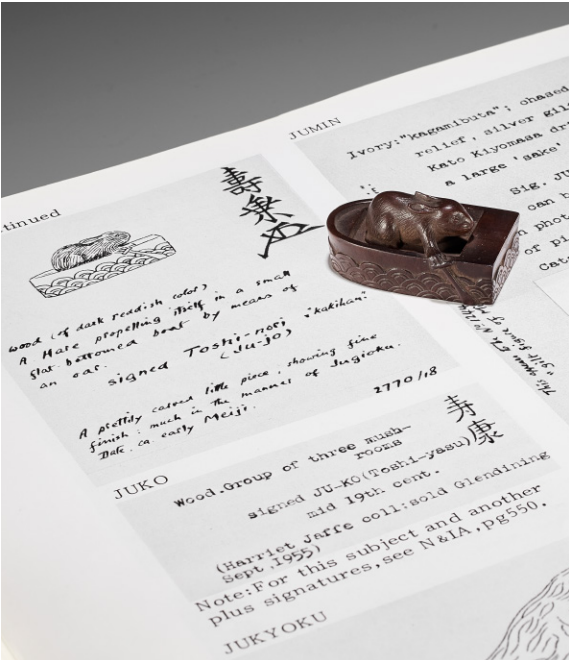 tinued
壽
樂
wood (of dark reddish color)
A Hare propelling itself in a small
flat-bottomed boat by means of
an oar.
signed Toshi-nori "kakihan"
(Ju-jo)
A prettily carved little piece, showing fine
finish; much in the manner of Jugioku.
Date. ca early Meiji.
2770/18
JUKO
寿
康
Wood.Group of three mush-
rooms
signed JU-KO(Toshi-yasu)
mid 19th cent.
(Harriet Jaffe coll:sold Glendining
Sept.1955)
Note:For this subject and another
plus signatures,see N&IA,pg550.
JUKYOKU
JUMIN
Ivory:"kagamibuta"; chased
relief, silver gil
Kato Kiyomasa dr
a large 'sake'
Sig. JU
can b
phot
of pi
Cat